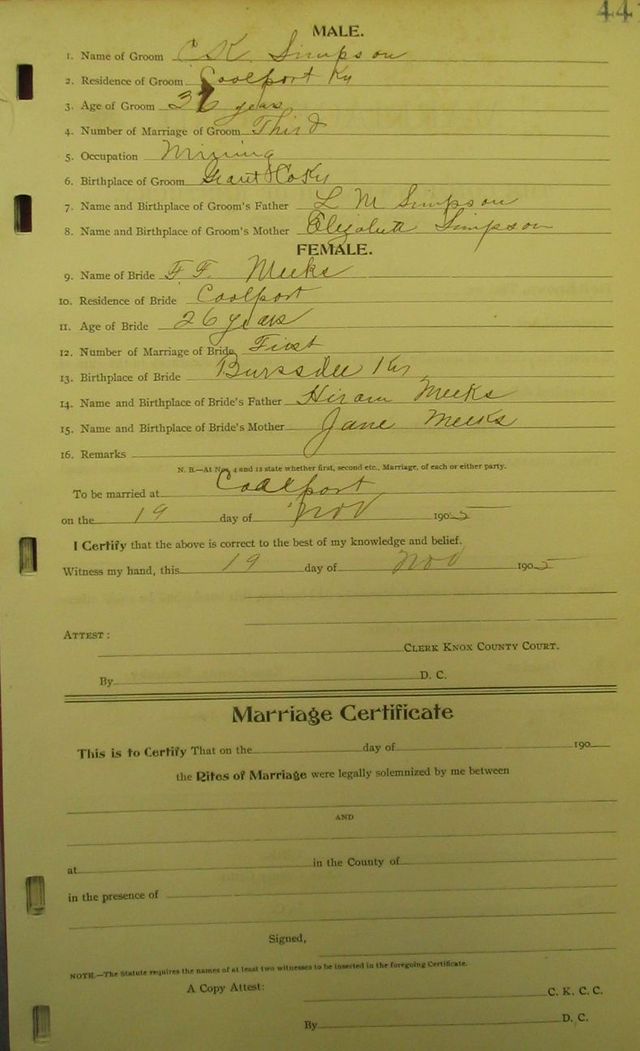 44
MALE.
1. Name of Groom C K Simpson
2. Residence of Groom Coolport Ky
3. Age of Groom 36 years
4. Number of Marriage of Groom Third
5. Occupation Mining
6. Birthplace of Groom Grant Co Ky
7. Name and Birthplace of Groom's Father L M Simpson
8. Name and Birthplace of Groom's Mother Elizabeth Simpson
FEMALE.
9. Name of Bride F. F. Meeks
10. Residence of Bride Coolport
11. Age of Bride 26 years
12. Number of Marriage of Bride First
13. Birthplace of Bride Ky
14. Name and Birthplace of Bride's Father Hiram Meeks
15. Name and Birthplace of Bride's Mother Jane Meeks
16. Remarks
N. B.—At Nos. 4 and 12 state whether first, second etc., Marriage, of each or either party.
To be married at Coalport
on the 19 day of Nov 1905
I Certify that the above is correct to the best of my knowledge and belief.
Witness my hand, this 19 day of Nov 1905
ATTEST:
CLERK KNOX COUNTY COURT.
By D. C.
Marriage Certificate
This is to Certify That on the day of 190
the Rites of Marriage were legally solemnized by me between
AND
at in the County of
in the presence of
Signed,
NOTE.—The Statute requires the names of at least two witnesses to be inserted in the foregoing Certificate.
A Copy Attest:
C. K. C. C.
By D. C.